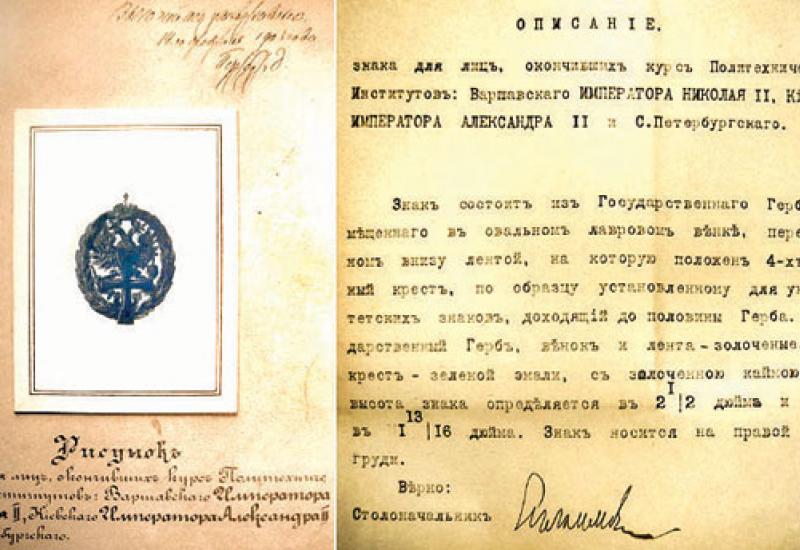 Рисунокъ
лицъ, окончившихъ курсъ Политехниче
ститутовъ: Варшавскаго Императора
II, Кіевскаго Императора Александра II
бургскаго.
ОПИСАНІЕ.
знака для лицъ, окончившихъ курсъ Политехниче
Институтовъ: Варшавскаго ИМПЕРАТОРА НИКОЛАЯ II, Кі
ИМПЕРАТОРА АЛЕКСАНДРА II и С.Петербургскаго.
Знакъ состоитъ изъ Государственнаго Герб
мѣщеннаго въ овальномъ лавровомъ вѣнкѣ, пере
номъ внизу лентой, на которую положенъ 4-хъ
ный крестъ, по образцу установленному для ун
тетскихъ знаковъ, доходящій до половины Герба.
дарственный Гербъ, вѣнокъ и лента-золоченые
крестъ-зеленой эмали, съ золоченною каймою
высота знака опредѣляется въ 2 I|2 дюйма и
въ I 13|16 дюйма. Знакъ носится на правой
груди.
Вѣрно:
Столоначальникъ